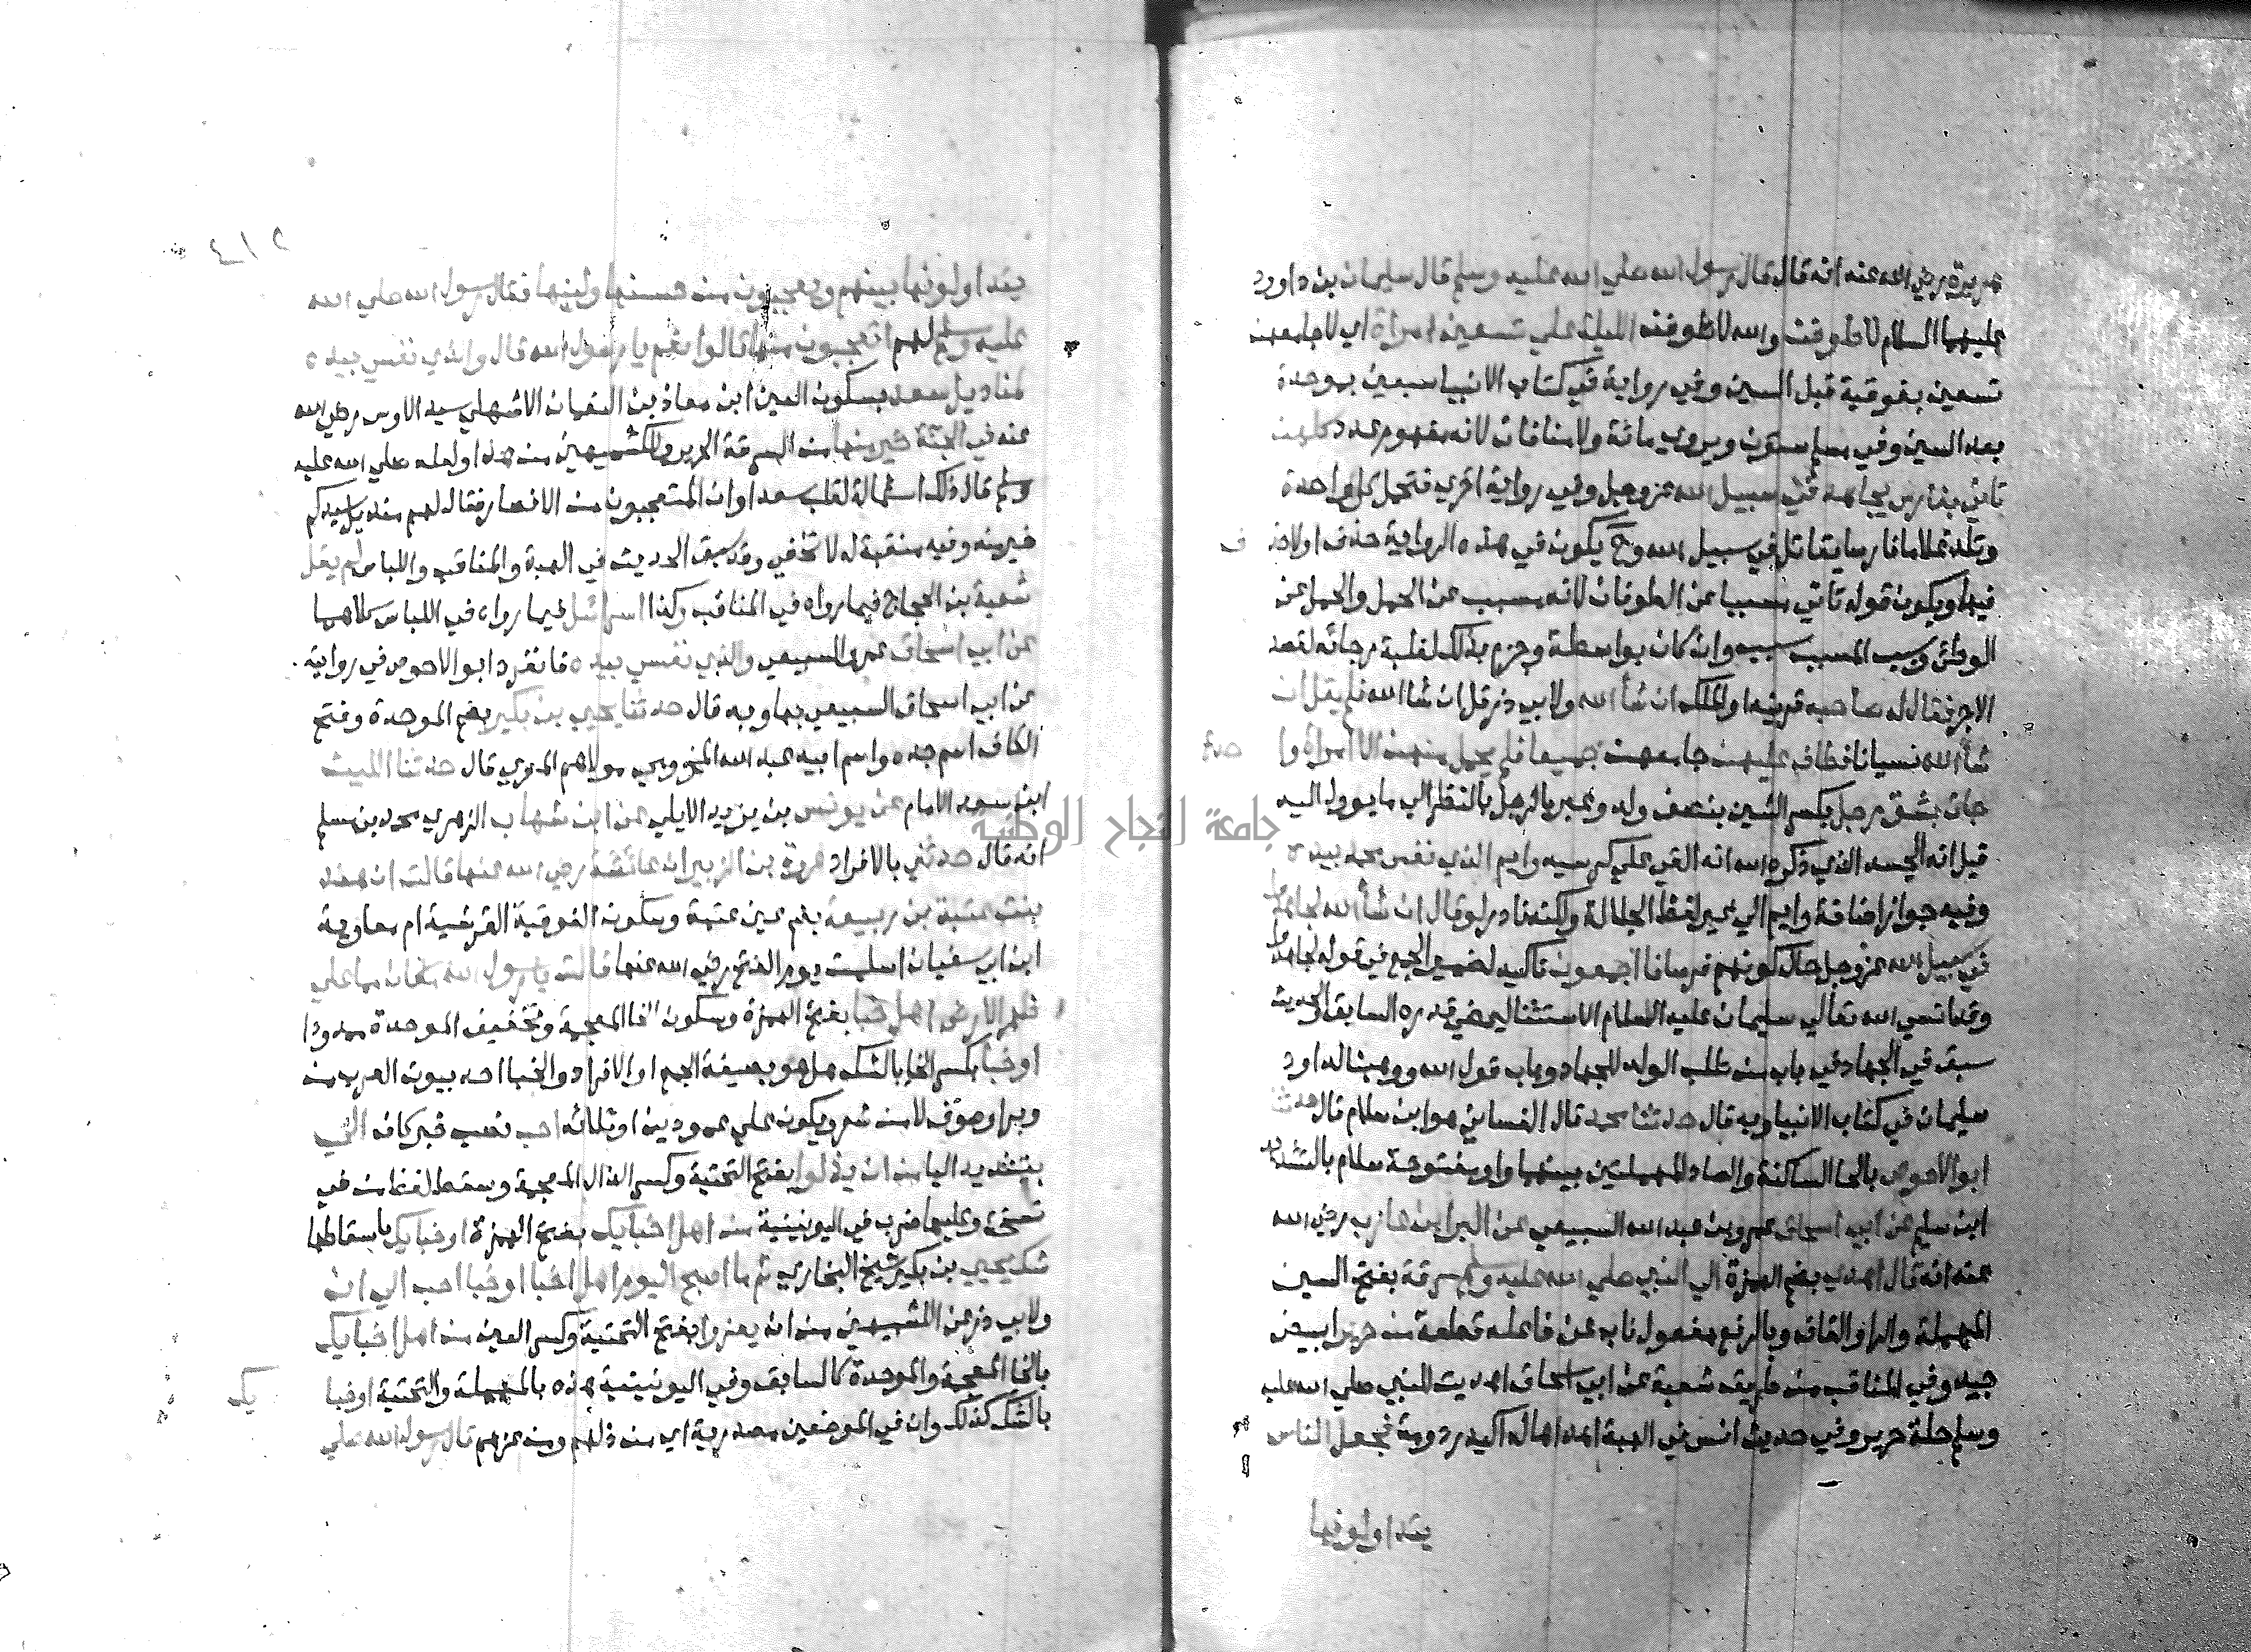 هريرة رضي الله عنه انه قال قال رسول الله صلي الله عليه وسلم قال سليمان بن داود
عليهما السلام لاطوفن والله لاطوفن الليلة علي تسعين امراة اي لاجامعهن
تسعين بفوقية قبل السين وفي رواية في كتاب الانبيا سبعين بموحدة
بعد السين وفي مسلم ستون ويروي مائة ولا منافات لانه مفهوم عدد كلهن
تاتي بفارس يجاهد في سبيل الله عز وجل وفي رواية اخري فتحمل كل واحدة
وتلد غلاما فارسا يقاتل في سبيل الله وح يكون في هذه الرواية حذف اولا حذ ف
فيها ويكون قوله تاتي مسببا عن الطوفان لانه مسبب عن الحمل والحمل عن
الوطئ وسبب المسبب سبب وان كان بواسطة وجزم بذلك لغلبة رجائه لقصد
الاجر فقال له صاحبه قرينه او الملك ان شأ الله ولابي ذر قل ان شا الله فلم يقل ان
شأ الله نسيانا فطاف عليهن جامعهن جميعا فلم يحمل منهن الا امراة وا حدة
جات بشق رجل بكسر الشين بنصف ولد وعبر بالرجل بالنظر الي ما يوول اليه
قيل انه الجسد الذي ذكره الله انه القي علي كرسيه وايم الذي نفس محمد بيده
وفيه جواز اضافة وايم الي غير لفظ الجلالة ولكنه نادر لو قال ان شأ الله لجاهدوا
في سبيل الله عز وجل حال كونهم فرسانا اجمعون تاكيد لضمير الجمع في قوله لجاهدوا
وقد انسي الله تعالي سليمان عليه السلام الاستثنا ليمضي قدره السابق الحديث
سبق في الجهاد في باب من طلب الولد للجهاد وباب قول الله ووهبنا لداود
سليمان في كتاب الانبيا وبه قال حدثنا محمد قال الغساني هو ابن سلام قال حدثنا
ابو الاحوص بالحا الساكنة والصاد المهملتين بينهما واو مفتوحة سلام بالتشديد
ابن سليم عن ابي اسحاق عمرو بن عبد الله السبيعي عن البرا بن عازب رضي الله
عنه انه قال اهدي بضم الهمزة الي النبي صلي الله عليه وسلم سرقة بفتح السين
المهملة والرا والقاف وبالرفع مفعول ناب عن فاعله قطعة من حرير ابيض
جيد وفي المناقب من طريق شعبة عن ابي اسحاق اهديت للنبي صلي الله عليه
وسلم حلة حرير وفي حديث انس في الهبة اهداها له اكيدر دومة فجعل الناس
يتداولونها
يتداولونها بينهم ويعجبون من حسنها ولينها فقال رسول الله صلي الله
عليه وسلم لهم اتعجبون منها قالوا نعم يا رسول الله قال والذي نفسي بيده
لمناديل سعد بسكون العين ابن معاذ بن النعمان الاشهلي سيد الاوس رضي الله
عنه في الجنة خير منها من السرقة الحرير وللكشميهني من هذا ولعله صلي الله عليه
وسلم قال ذلك استمالة لقلب سعد او ان المتعجبون من الانصار فقال لهم منديل سيدكم
خير منه وفيه منقبة له لا تخفي وقد سبق الحديث في الهبة والمناقب واللباس لم يقل
شعبة بن الحجاج فيما رواه في المناقب وكذا اسرائيل فيما رواه في اللباس كلاهما
عن ابي اسحاق عمرو السبيعي والذي نفسي بيده فانفرد ابو الاحوص في روايته
عن ابي اسحاق السبيعي بها وبه قال حدثنا يحيي بن بكير بضم الموحدة وفتح
الكاف اسم جده واسم ابيه عبد الله المخزومي مولاهم المصري قال حدثنا الليث
ابن سعد الامام عن يونس بن يزيد الايلي عن ابن شهاب الزهري محمد بن مسلم
انه قال حدثني بالافراد عروة بن الزبير ان عائشة رضي الله عنها قالت ان هند
بنت عتبة بن ربيعة بضم عين عتبة وسكون الفوقية القرشية ام معاوية
ابن ابي سفيان اسلمت يوم الفتح رضي الله عنها قالت يا رسول الله ما كان مما علي
ظهر الارض اهل اخبا بفتح الهمزة وسكون الخا المعجمة وتخفيف الموحدة ممدودا
او خبأ بكسر الخا بالشك هل هو بصيغة الجمع او الافراد والخبا احد بيوت العرب من
وبر او صوف لا من شعر ويكون علي عمودين او ثلاثه احب نصب خبر كان الي
بتشديد اليا من ان يذلوا بفتح التحتية وكسر الذال المعجمة وسقط لفظ من في
نسخة وعليها ضرب في اليونينية من اهل اخبايك بفتح الهمزة او خبايك باسقاطها
شك يحيي بن بكير شيخ البخاري ثم ما اصبح اليوم اهل اخبا او خبا احب الي ان
ولابي ذر عن الكشميهني من ان يعزوا بفتح التحتية وكسر العين من اهل اخبايك
بالخا المعجمة والموحدة كالسابق وفي اليونينية هذه بالمهملة والتحتية او خبا يك
بالشك كذلك وان في الموضعين مصدرية اي من ذلهم ومن عزهم قال رسول الله صلي
جامعة النجاح الوطنية